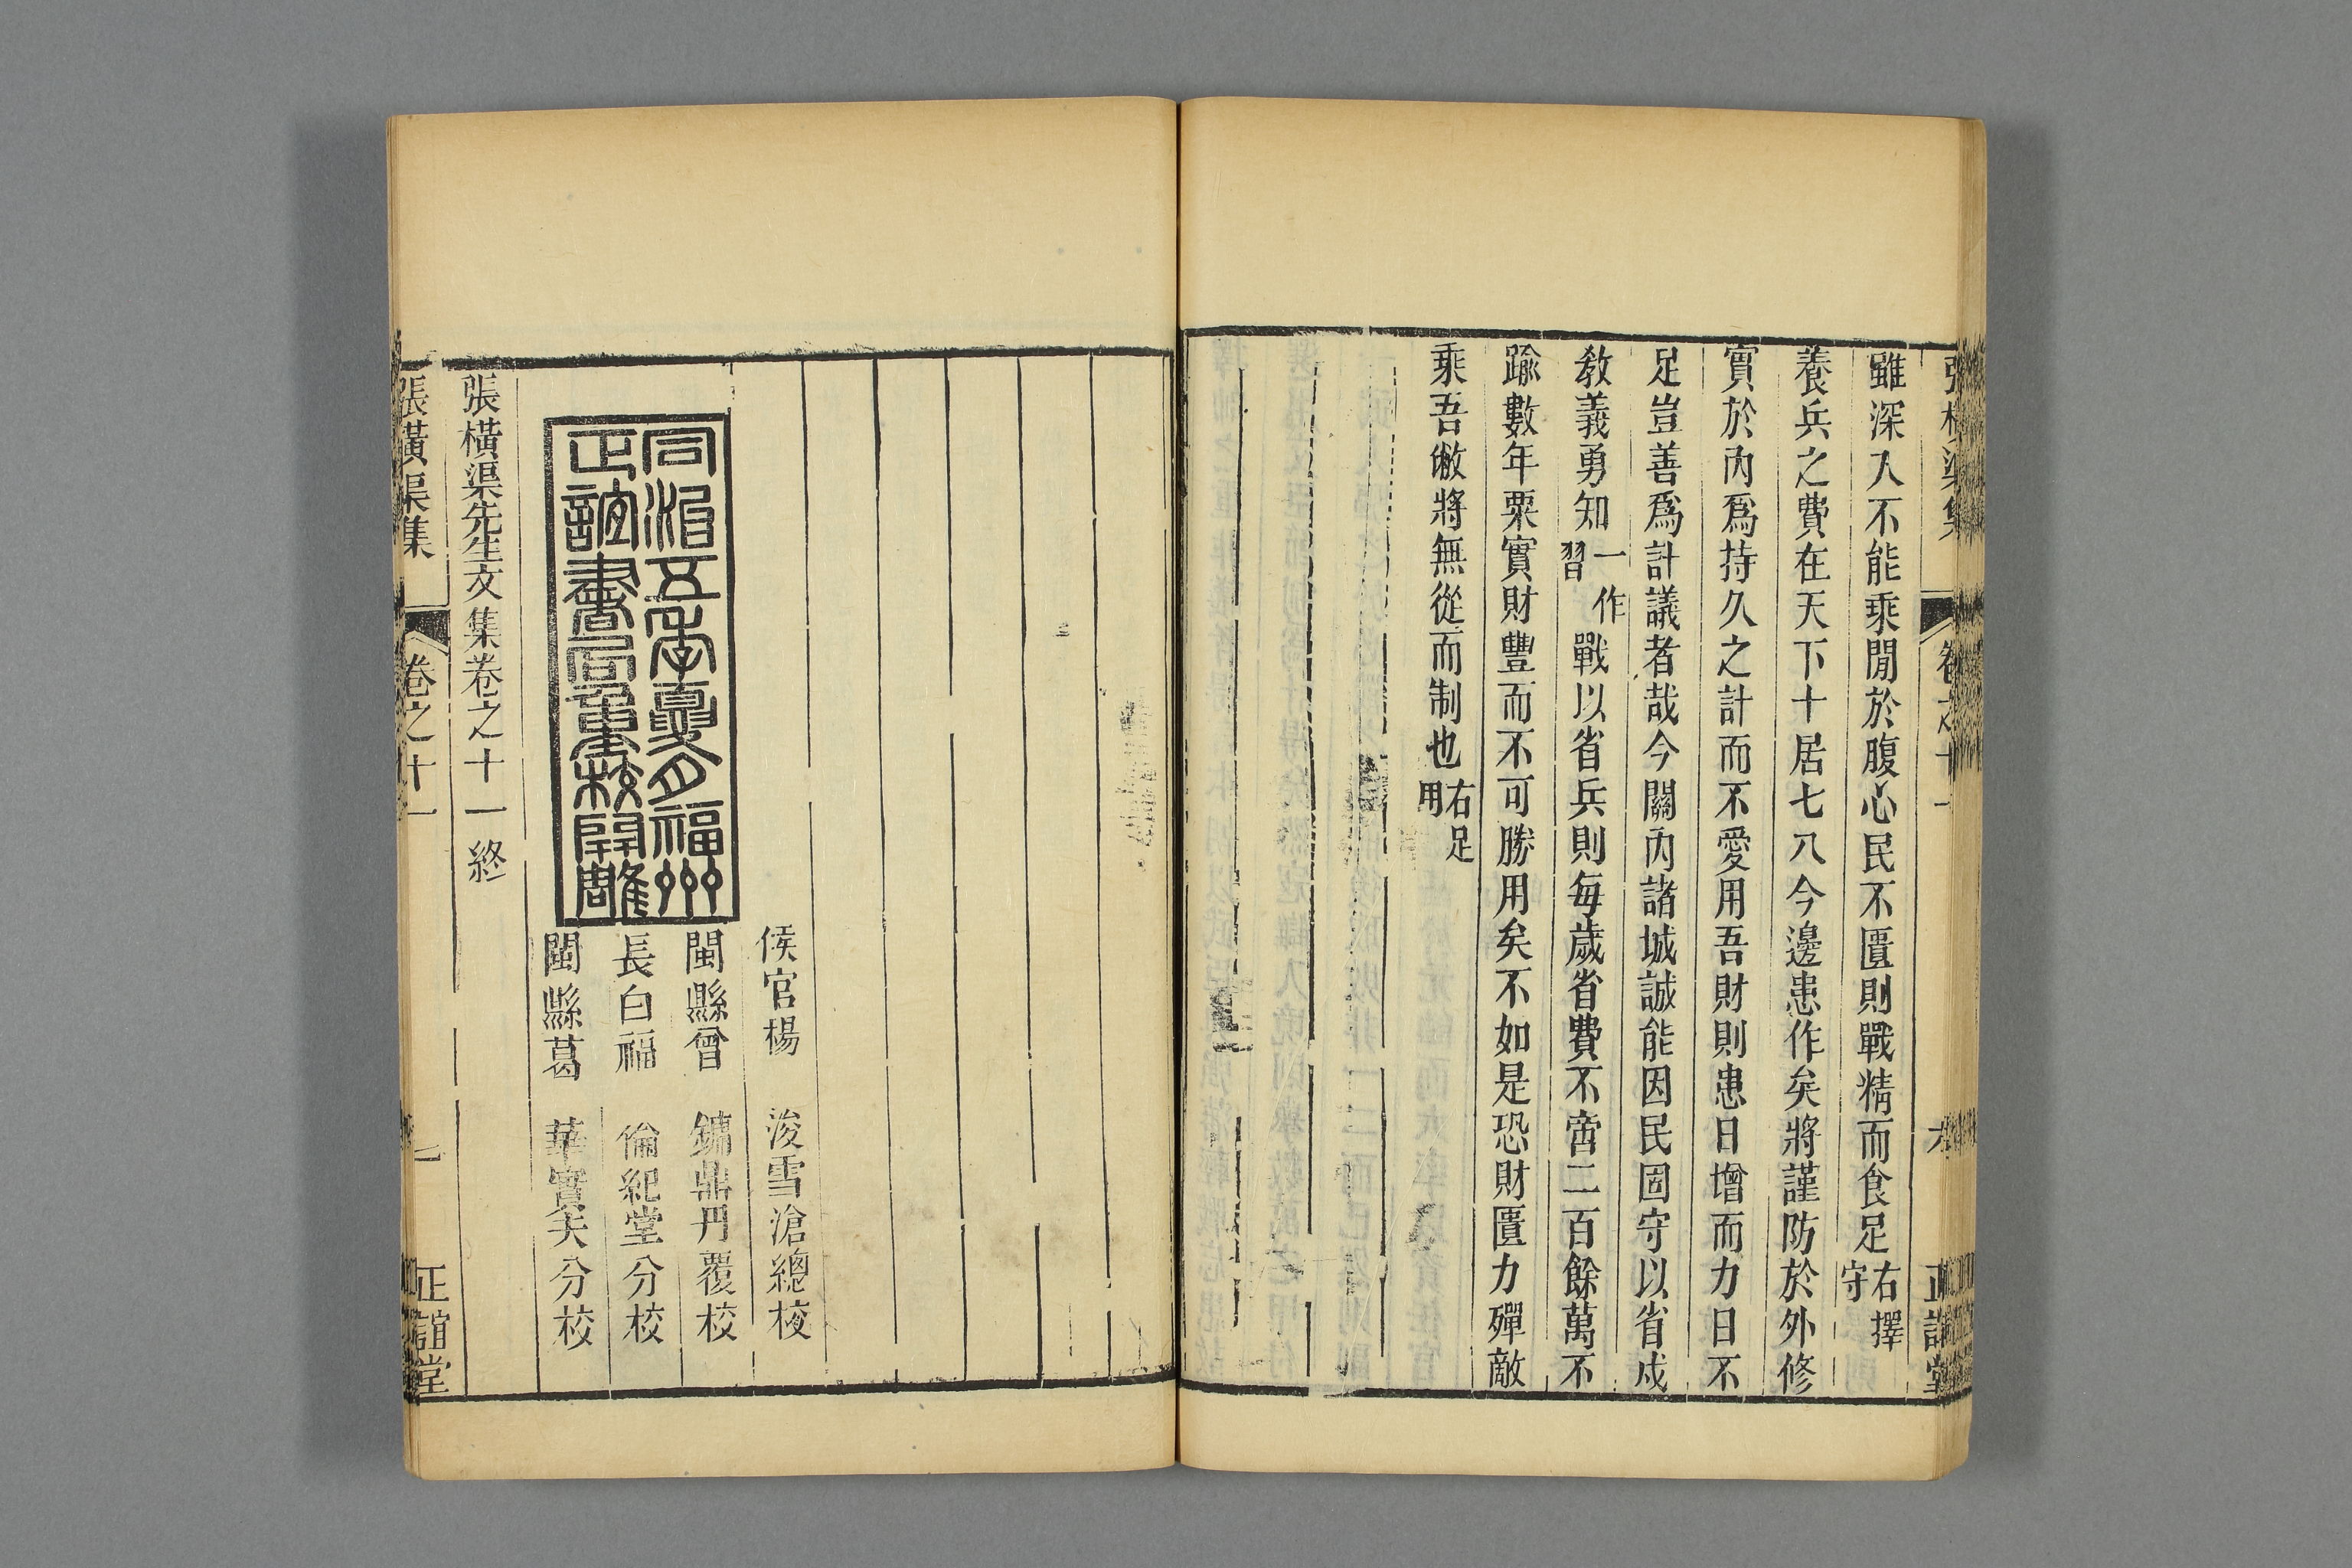 雖深入不能乘閒於腹心民不匱則戰精而食足右擇守
養兵之費在天下十居七八今邊患作矣將謹防於外修
實於內爲持久之計而不愛用吾財則患日增而力日不
足豈善爲計議者哉今關內諸城誠能因民固守以省戍
教義勇知一作習戰以省兵則每歲省費不啻二百餘萬不
踰數年粟實財豐而不可勝用矣不如是恐財匱力殫敵
乘吾敝將無從而制也右足用
侯官楊浚雪滄總校
閩縣曾鏞鼎丹覆校
長白福倫紀堂分校
閩縣葛華實夫分校
同治五年夏月福州
正誼書局重校開雕
張橫渠先生文集卷之十一終
張橫渠集 卷之十一 正誼堂